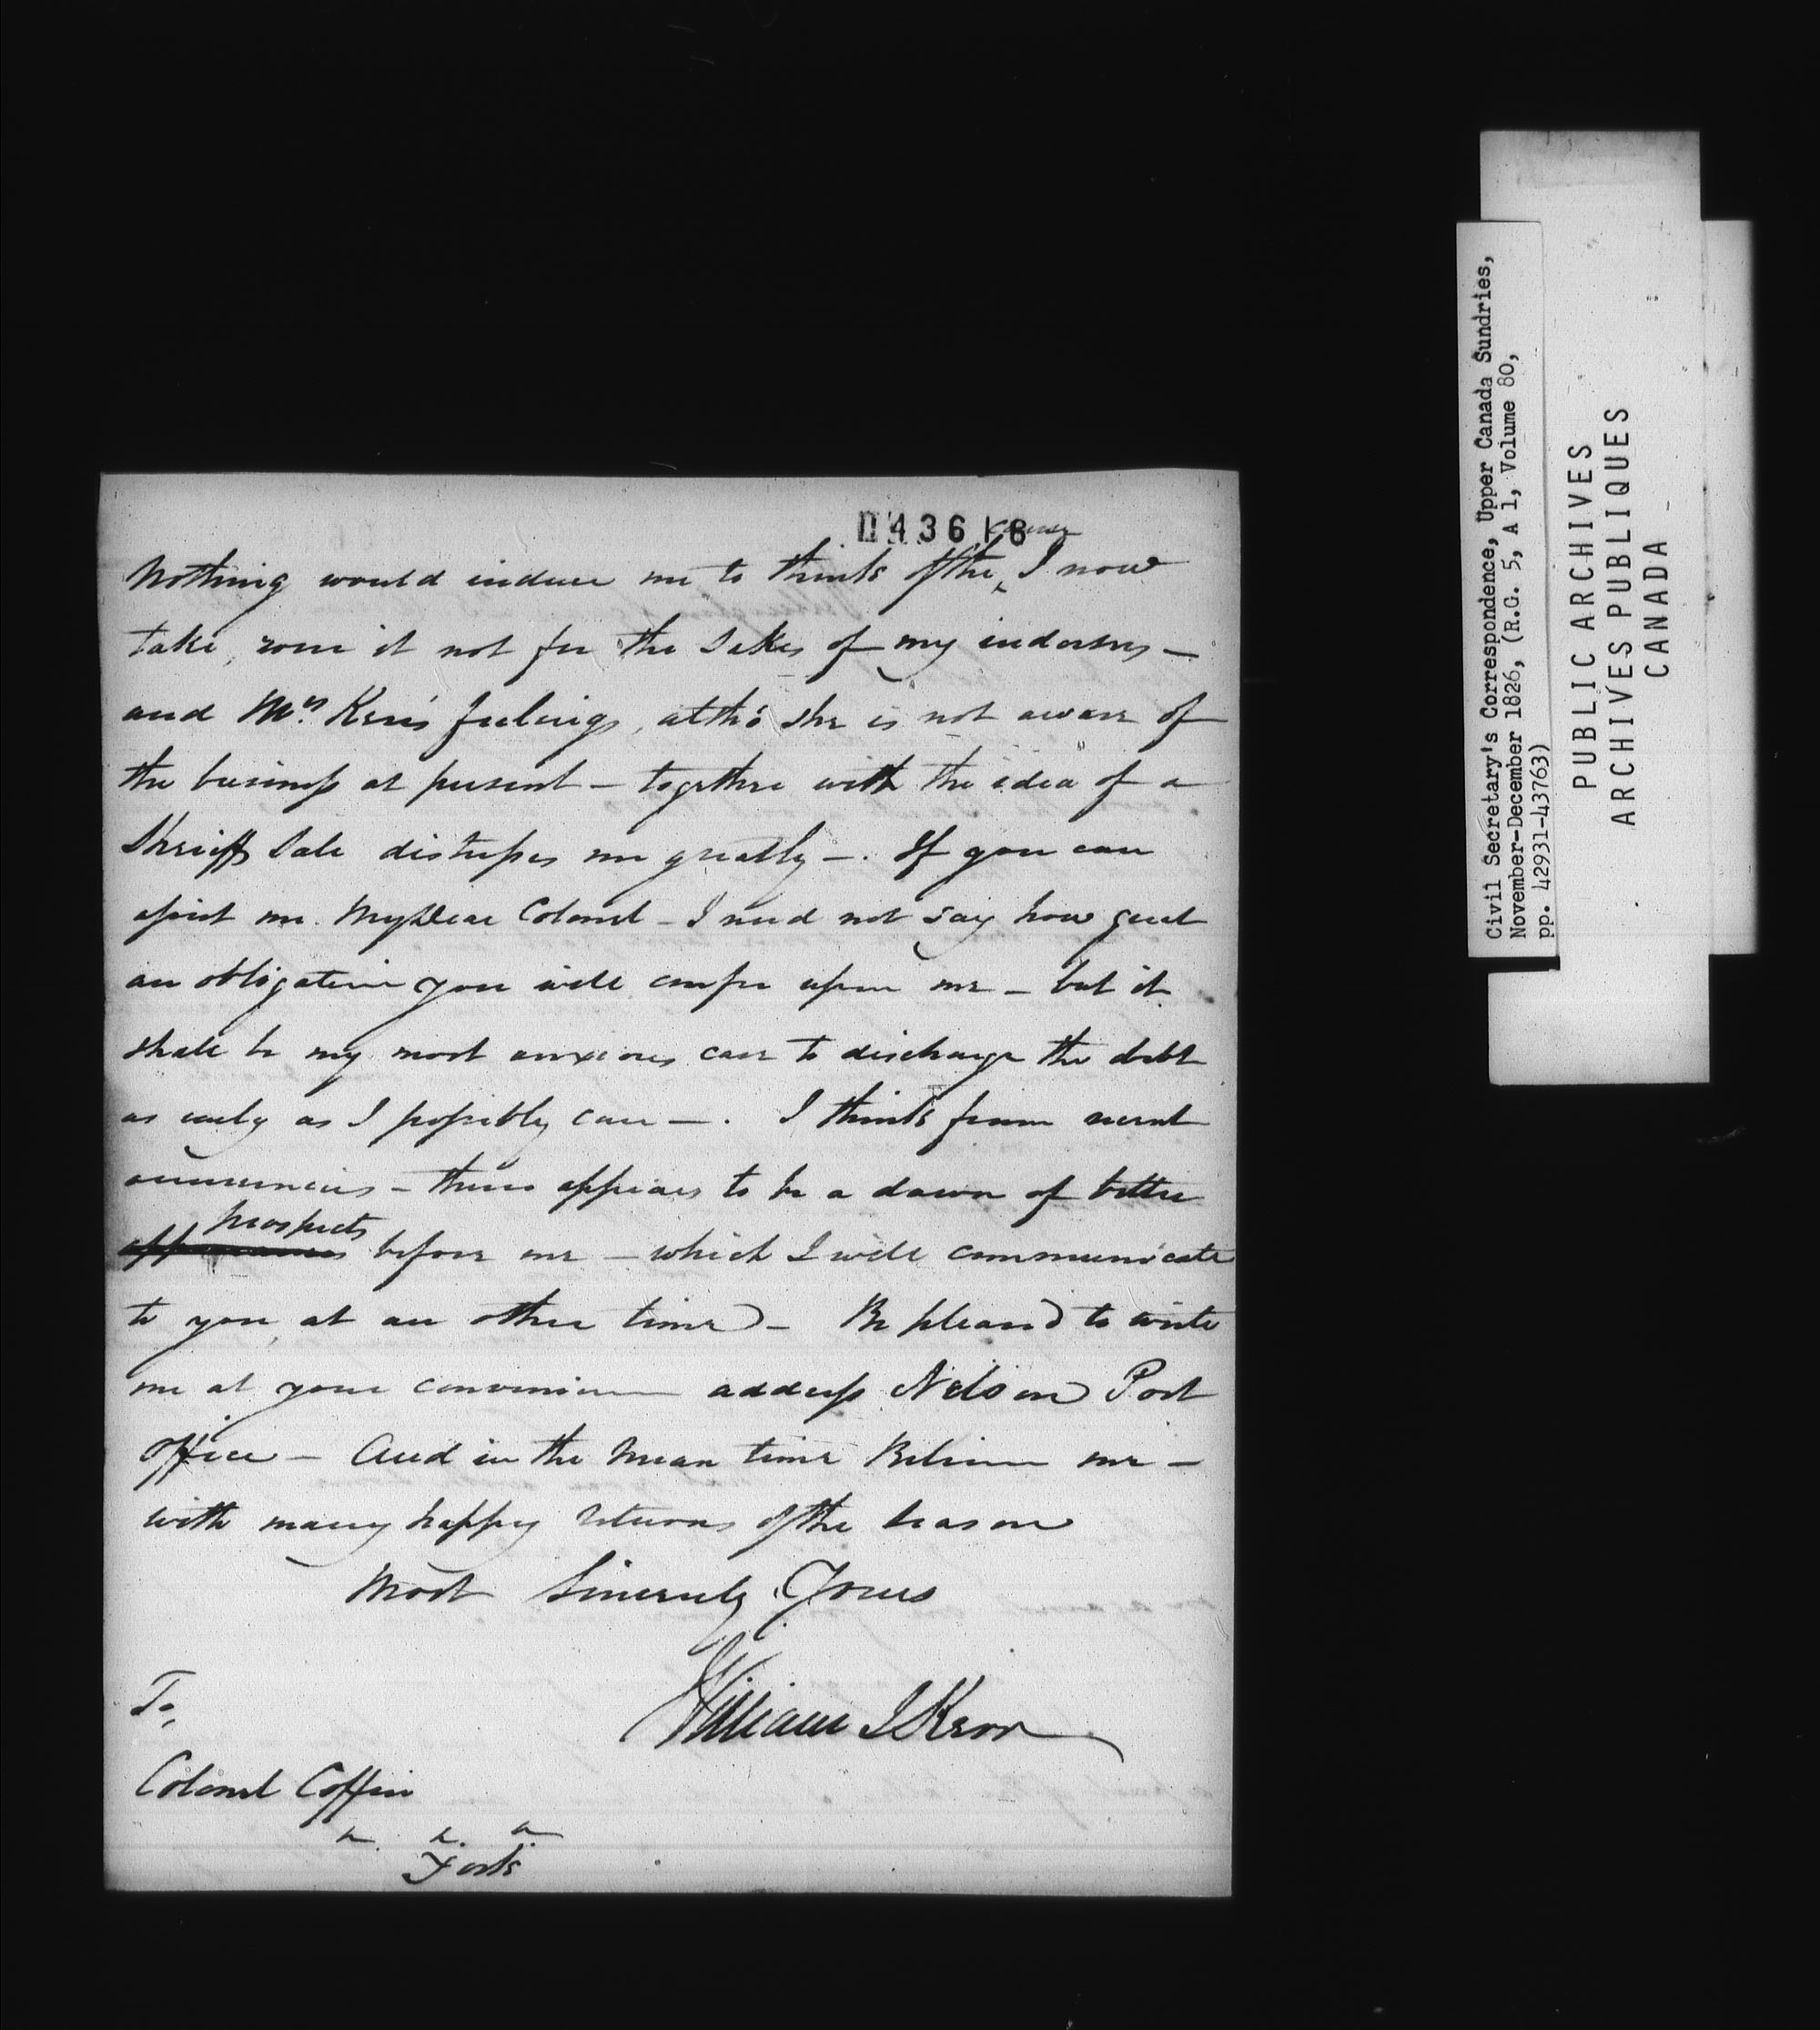 43618
course
Nothing would induce me to think of the ^ I now
take, were it not for the sakes of my indorsers —
and Mrs. Kerr's feelings, altho' she is not aware of
the business at present — together with the idea of a
Sheriffs Sale distresses me greatly —. If you can
assist me My Dear Colonel — I need not say how great
an obligation you will confer upon me — but it
shall be my most anxious care to discharge the debt
as early as I possibly can —. I think from recent
occurrencies — there appears to be a dawn of better
prospects
appearances before me — which I will communicate
to you at an other time — Be pleased to write
me at your convenience address Nelson Post
Office — And in the mean time Believe me —
with many happy returns of the season
Most Sincerely Yours
William J Kerr
To,
Colonel Coffin
York
Civil Secretary's Correspondence, Upper Canada Sundries,
November-December 1826, (R.G. 5, A 1, Volume 80,
pp. 42931-43763)
PUBLIC ARCHIVES
ARCHIVES PUBLIQUES
CANADA